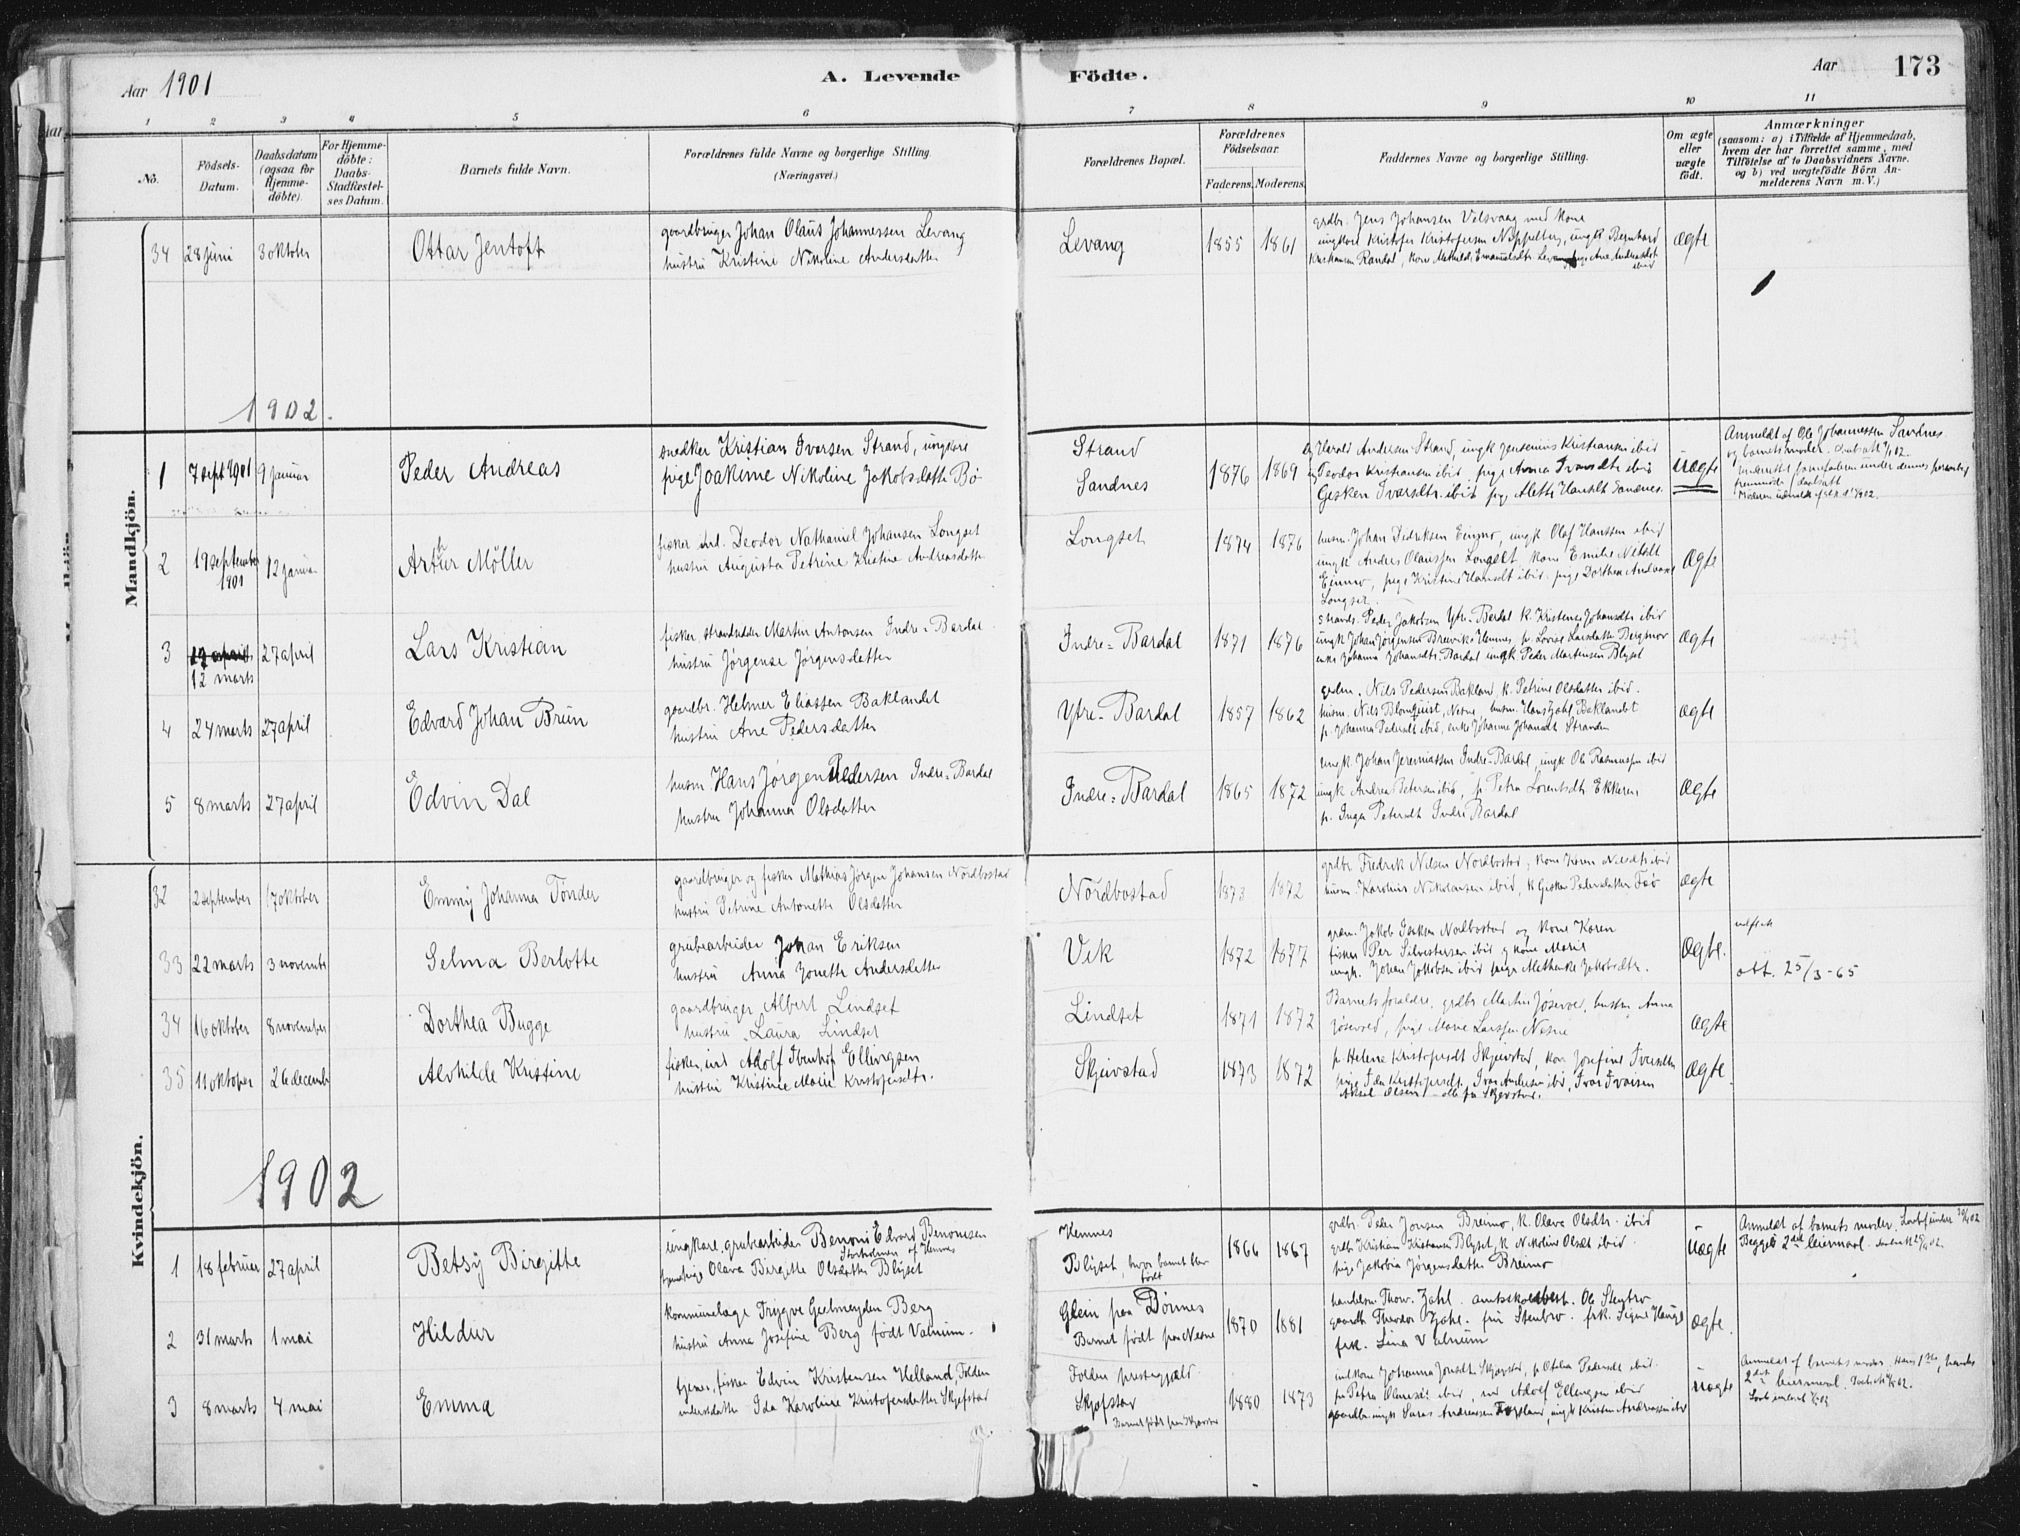 Aar 1901
A. Levende Födte.
Aar 173
1 2 3 4 5 6 7 8 9 10 11
No.
Födsels-Datum.
Daabsdatum (ogsaa for Hjemmedöbte).
For Hjemmedöbte: Daabs-Stadfæstelses Datum.
Barnets fulde Navn.
Forældrenes fulde Navne og borgerlige Stilling. (Næringsvei.)
Forældrenes Bopæl.
Forældrenes Födselsaar.
Faderens. Moderens.
Faddernes Navne og borgerlige Stilling.
Om ægte eller uægte födt.
Anmærkninger
(saasom: a) i Tilfælde af Hjemmedaab, hvem der har forrettet samme, med Tilföielse af to Daabsvidners Navne. og b) ved uægtefödte Börn Anmelderens Navn m. V.)
Mandkjön.
34 28 juni 3 oktober Ottar Jentoft
gaardbruger Johan Olaus Johannessen Levang
hustru Kristine Nikoline Andersdatter
Levang 1855 1861
grdbr. Jens Johansen Velsvaag med kone
ungkar Kristofer Kristofersen Nippelberg, ungk Bernhard
Kristiansen Randal, kone Mathilde Emanuelsdtr Levang, pige Ane Andreasdtr
ibid
ægte
1902.
1 7 sept 1901 9 januar Peder Andreas
snedker Kristian Iversen Strand, ungkare
pige Joakime Nikoline Jakobsdatter Bø
Strand
Sandnes
1876 1869
Harald Andersen Strand, ungk Jentenius Kristiansen ibid
Teodor Kristiansen ibid, pige Anna Iversdtr ibid
Gesken Iversdtr. ibid pige Alette Hansdtr Sandnes.
uægte
Anmeldt af Ole Johannessen Sandnes
og barnets moder.
2 19 september 1901 12 januar Arthur Möller
fisker ind. Deodor Nathaniel Johansen Longset
hustru Augusta Petrine Kristine Andreasdatter
Longset 1874 1876
husm. Johan Didriksen Einmo, ungk Olaf Hanssen ibid
ungk Anders Olaussen Longset, kone Emilie Nilsdt
Einmo, pige Kristine Hansdt ibid. pige Dorthea Andreasd
Longset.
ægte
3 27 april 12 marts 27 april Lars Kristian
fisker, strandsidder Martin Antonsen Indre-Bardal
hustru Jørgense Jørgensdatter
Indre-Bardal 1871 1876
strands. Peder Jakobsen Ytre-Bardal k. Kristense Johansdtr ibid
ungk Johan Jørgensen Breivik, Hemnes, p. Lovise Larsdatter Bergmoe
enke Johanna Johansdtr. Bardal ungk Peder Mortensen Blyset
ægte
4 24 marts 27 april Edvard Johan Brun
gaardbr. Helmer Eliassen Baklandet
hustru Ane Pedersdatter
Ytre-Bardal 1857 1862
grdm. Nils Pedersen Bakland, k. Petrine Olsdatter ibid.
husm. Nils Blomquist, Nesne, husm. Hans Zahl Baklandet
p. Johanna Pedersdt ibid, enke Johanne Johansdt Stranden
ægte
5 8 marts 27 april Edvin Dal
husm. Hans Jørgen Pedersen Indre-Bardal
hustru Johanna Olsdatter
Indre-Bardal 1865 1872
ungk. Johan Jeremiassen Indre-Bardal, ungk Ole Rasmussen ibid
ungk Andreas Petersen ibid, p. Petra Lorentsdtr Ekkeren
p. Inga Petersdt Indre Bardal
ægte
Kvindekjön.
32 2 september 17 oktober Emmy Johanna Tönder
gaardbruger og fisker Mathias Jørgen Johansen Nordbostad
hustru Petrine Antonette Olsdatter
Nordbostad 1873 1872
grdbr. Fredrik Nilsen Nordbostad, kone Karen Nilsdtr ibid
husm. Karolius Nikolausen ibid, k. Gesken Pedersdatter
ægte
33 22 marts 3 novembr Selma Berlotte
grubearbeider Johan Eriksen
hustru Anna Jonette Andersdatter
Vik 1872 1877
Jakob Nordbostad og kone Karen
fisker Per Silvestersen ibid og kone Marie
ungk. Johan Jakobsen ibid pige Jakobsdtr.
ægte.
att. 25/3-65
34 16 oktober 8 november Dorthea Bugge
gaardbruger Albert Lindset
hustru Laura Lindset
Lindset 1871 1872
Barnets foraldre, grdbr Martin Jösevoll, hustru Anna
Jösevold, pige Marie Larssen Nesne
ægte
35 11 oktober 26 decembr Alvhilde Kristine
fisker, ind Adolf Ellingsen
hustru Kristine Marie Kristofersdtr.
Skjeivstad 1873 1872
p Helene Kristofersdt Skjeivstad, kon Josefine Iversdtr
pige Ida Kristofersdt. Ivar Andersen ibid, Ivar Ivarsen
Aksel Olsen alle fra Skjevstad.
ægte.
1902
1 18 februar 27 april Betsy Birgitte
ungkare, grubearbeider Benoni Edvard Benonisen
Storholmen af Hemnes
pige Olava Birgitte Olsdatter Blyset
Hemnes
Blyset, hvor barnet blev
født
1866 1867
grdbr. Peder Jonsen Breimo, k. Olava Olsdtr. ibid
grdbr Kristian Kristiansen Blyset, k Nikoline Olsdt ibid
pige Jakobia Jørgensdatter Breimo
uægte
Anmeldt af barnets moder.
Begges 2det leiermaal.
2 31 marts 1 mai Hildur
kommunelæge Trygve Geelmuyden Berg
hustru Anna Josefine Berg født Valnum.
Glein paa Dönnes
Barnet født paa Nesne
1870 1881
handelsm. Thorv. Zahl. amtsskolebest. Ole Stenbro
gaardb Theodor Zahl. fru Stenbro. frk. Signe Haugl
frk. Lina Valnum
ægte.
3 8 marts 4 mai Emma
fisker Edvin Kristensen Helland, Folden
inderstdatter Ida Karoline Kristofersdatter Skjefstad
Folden prestegjæld
Skjefstad
Barnet født paa Skjevstad
1880 1873
Johanna Jonsdt Skjevstad, p. Otelia Pedersdt ibid.
p. Petra ibid, ind Adolf Ellingsen ibid
gaardbr. ungk Lars Andreassen, ungk Kristen Andreassen ibid
uægte
Anmeldt af barnets moder. Hans 1ste, hendes
2det leiermaal.